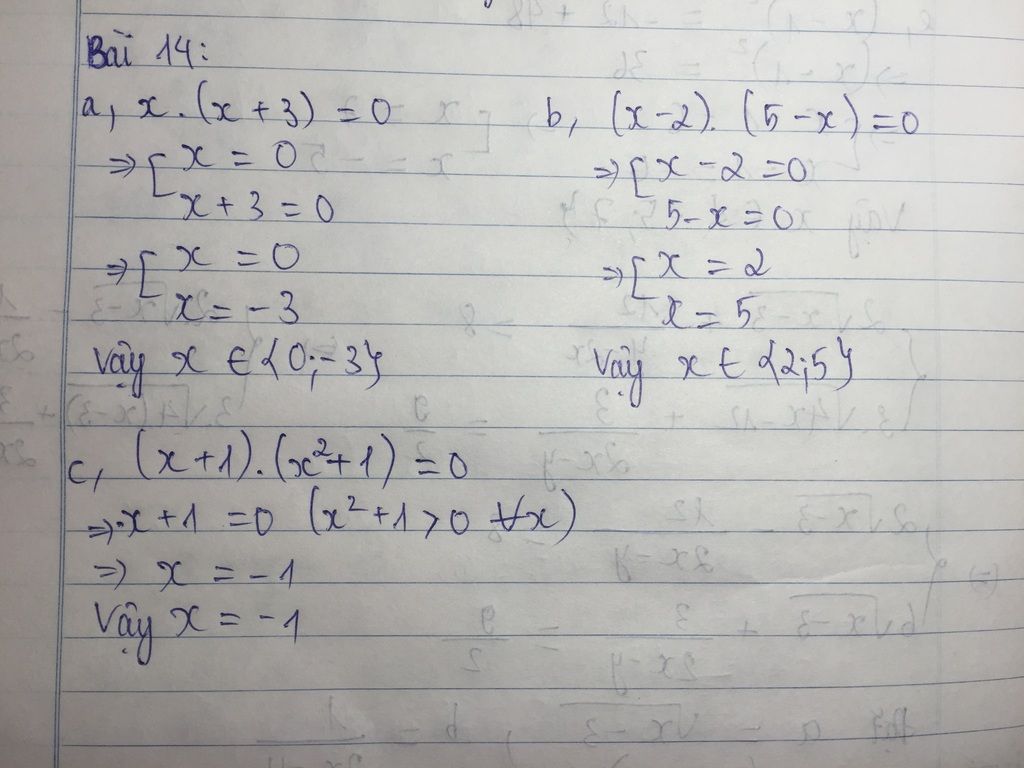 Bài 14:
a, x . (x + 3) = 0
⇒ [ x = 0
x + 3 = 0
⇒ [ x = 0
x = - 3
Vậy x ∈ {0; -3}
b, (x - 2). (5 - x) = 0
⇒ [ x - 2 = 0
5 - x = 0
⇒ [ x = 2
x = 5
Vậy x ∈ {2; 5}
c, (x + 1). (x² + 1) = 0
⇒ x + 1 = 0 (x² + 1 > 0 ∀x)
⇒ x = - 1
Vậy x = - 1